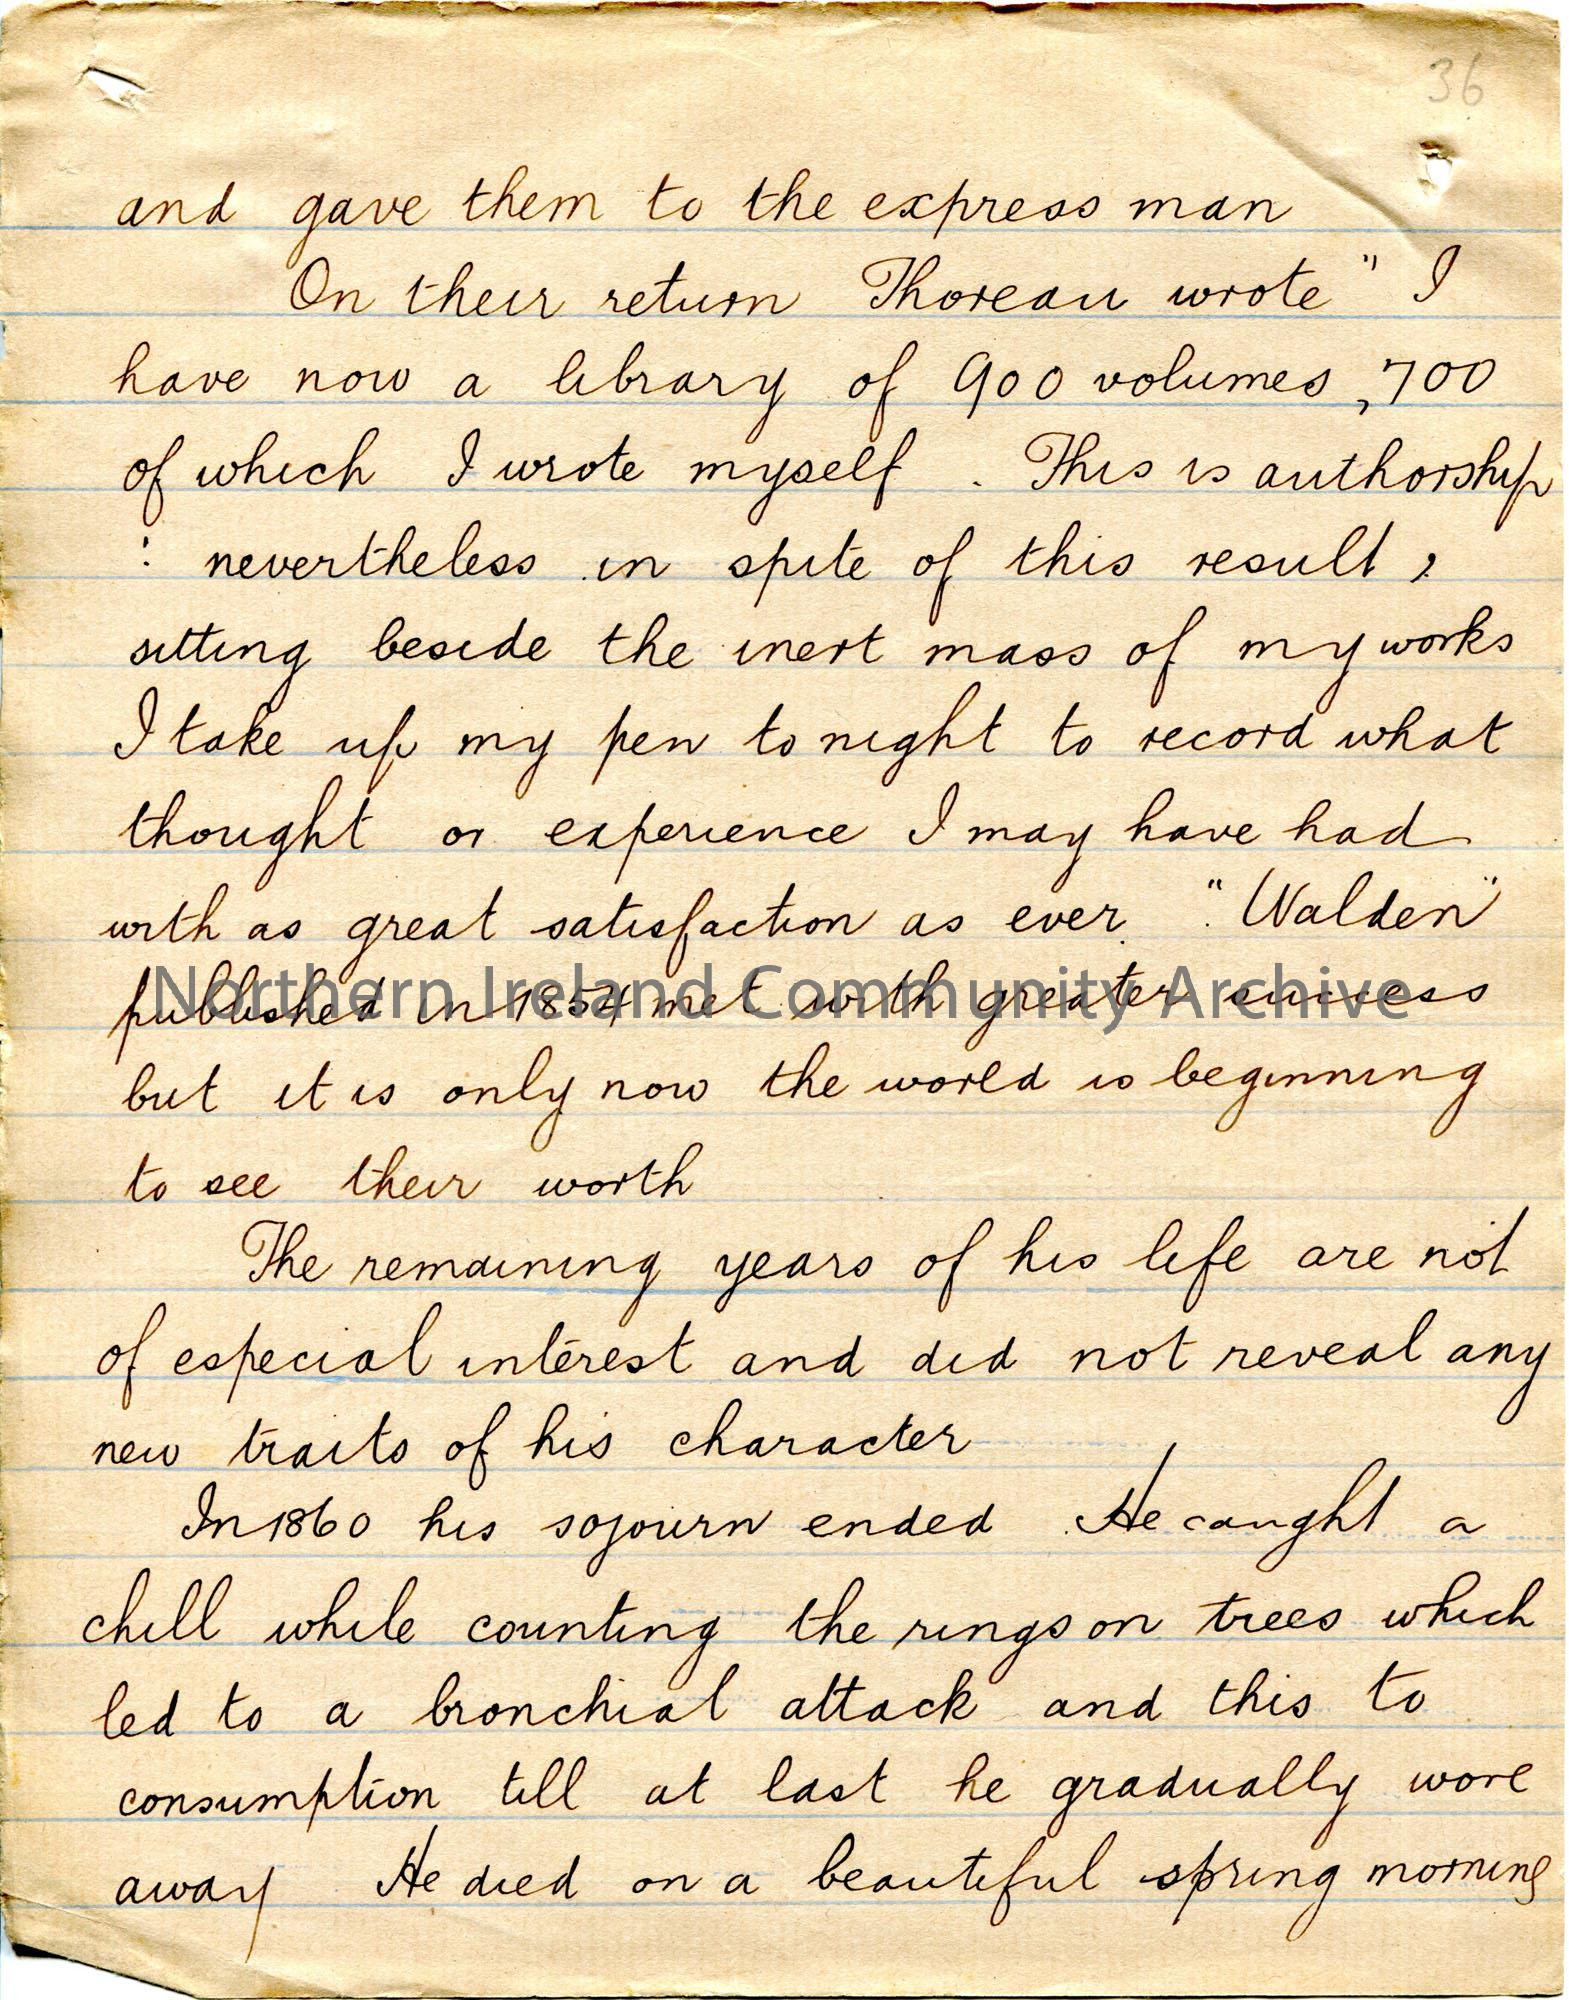 36
and gave them to the express man
On their return Thoreau wrote " I
have now a library of 900 volumes, 700
of which I wrote myself . This is authorship
: nevertheless in spite of this result,
sitting beside the inert mass of my works
I take up my pen to night to record what
thought or experience I may have had
with as great satisfaction as ever. "Walden"
published in 1854 met with greater success
Northern Ireland Community Archive
but it is only now the world is beginning
to see their worth
The remaining years of his life are not
of especial interest and did not reveal any
new traits of his character
In 1860 his sojourn ended. He caught a
chill while counting the rings on trees which
led to a bronchial attack and this to
consumption till at last he gradually wore
away He died on a beautiful spring morning